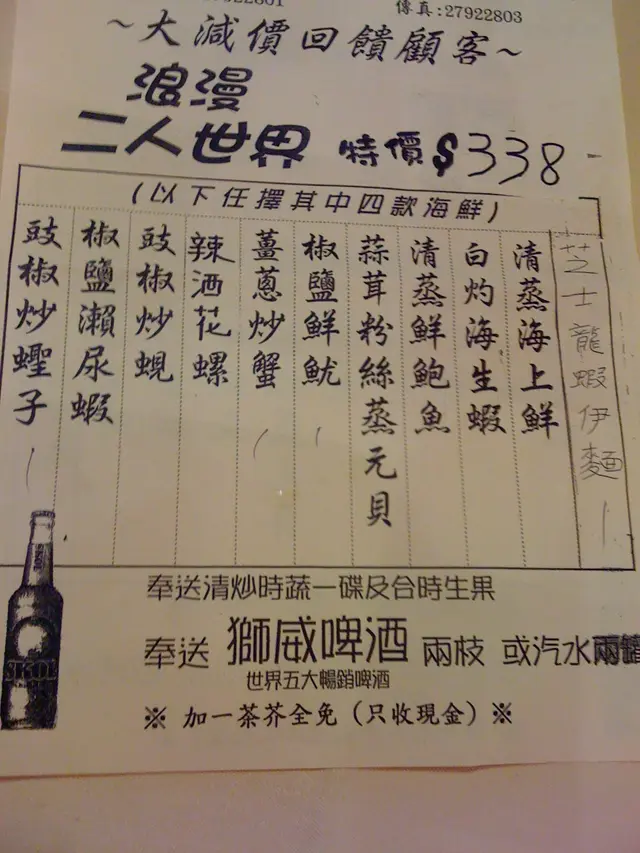 傳真:27922803
~大減價回饋顧客~
浪漫
二人世界 特價$338
(以下任擇其中四款海鮮)
芝士龍蝦伊麵
清蒸海上鮮
白灼海生蝦
清蒸鮮鮑魚
蒜茸粉絲蒸元貝
椒鹽鮮魷
薑蔥炒蟹
辣酒花螺
豉椒炒蜆
椒鹽瀨尿蝦
豉椒炒蟶子
奉送清炒時蔬一碟及合時生果
奉送 獅威啤酒 兩枝 或汽水兩罐
世界五大暢銷啤酒
※ 加一茶芥全免(只收現金)※
SKOL